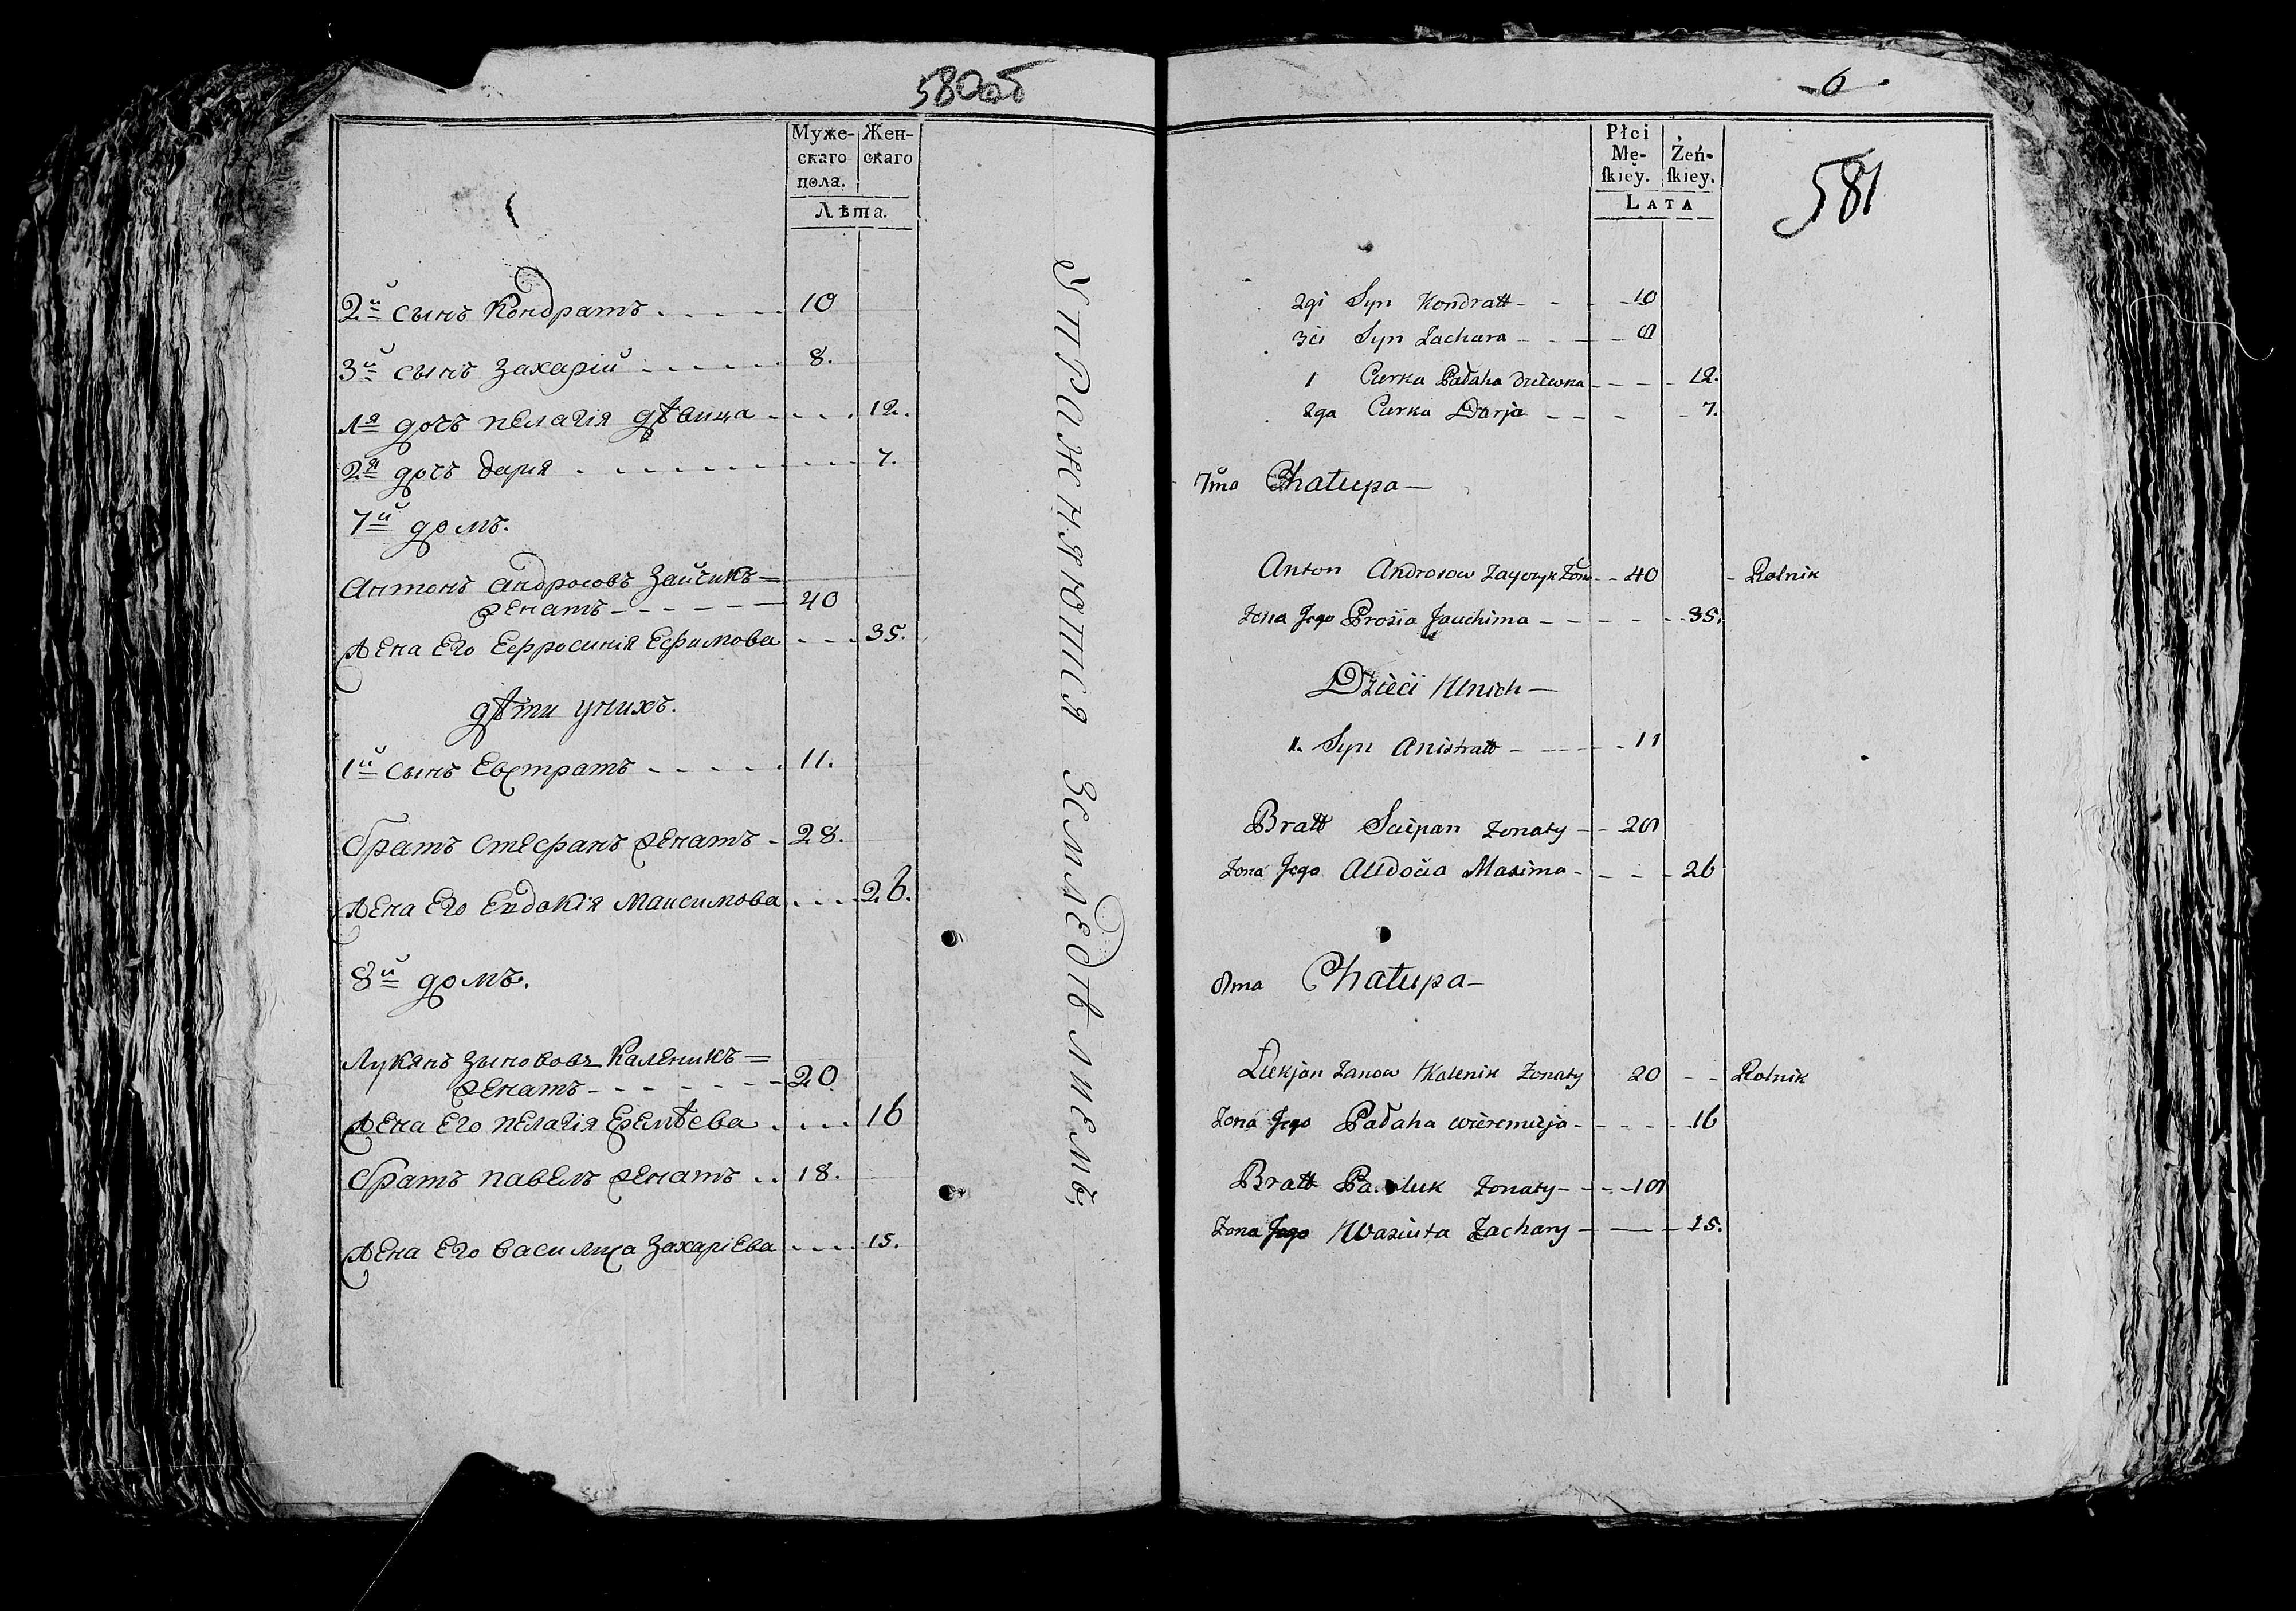 580об
Муже- Жен-
скаго скаго
пола.
Лѣта.
2й сынъ Кондратъ 10
3й сынъ Захарій 8.
1я дочь пелагія дѣвица 12.
2я дочь дарія 7.
7й домъ.
Антонъ андросовъ Зайчикъ=
женатъ 40
Жена Его Ефросинія Ефимова 35.
дѣти унихъ.
1й сынъ Евстратъ 11.
братъ стефанъ женатъ 28.
Жена Его Евдокія Максимова 26.
8й домъ.
Лукянъ Зынововъ Каленикъ=
женатъ 20
Жена Его пелагія Еремѣева 16
братъ павелъ женатъ 18.
Жена Его василиса Захаріева 15.
Упражняются Земледѣлиемъ
6
581
Płci
Mę- Żeń-
ſkiey. ſkiey.
LATA
2gi Syn Kondratt 10
3ci Syn Zachara 8
1 Curka Pałaha dziewka 12.
2ga Curka Darja 7.
7ma Chałupa
Anton Androsow Zayczyk Żon 40 Rolnik
Zona Jego Prosia Jauchima 35.
Dzieci Unich
1. Syn Anistratt 11
Bratt Sciepan Zonaty 28
Zona Jego Audocia Maxima 26
8ma Chałupa
Lukjan Zanow Kalenik Zonaty 20 Rolnik
Zona Jego Pałaha wieremieja 16
Bratt Pauluk Zonaty 18
Zona Jego Wasiuta Zachary 15.